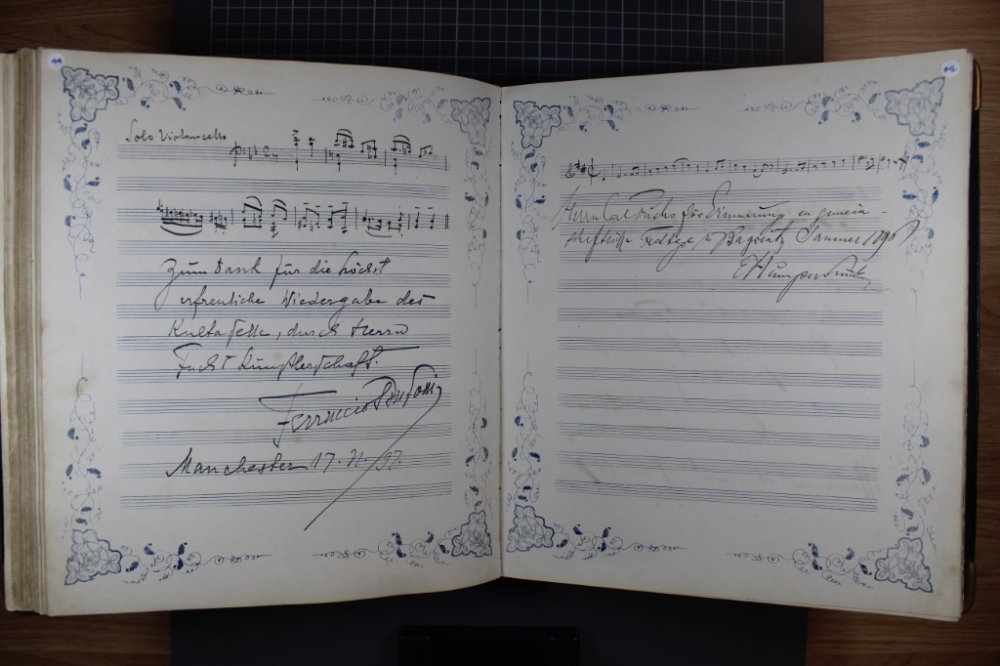 Solo Violoncello
Zum Dank für die höchst
erfreuliche Wiedergabe des
Kultaselle, durch Herrn
Fuchs' Künstlerschaft.
Ferruccio Busoni
Manchester 17. 11. 97.
Herrn Carl Fuchs zur Erinnerung an gemein-
schaftliche in Bayreuth Sommer 1896
EHumperdinck